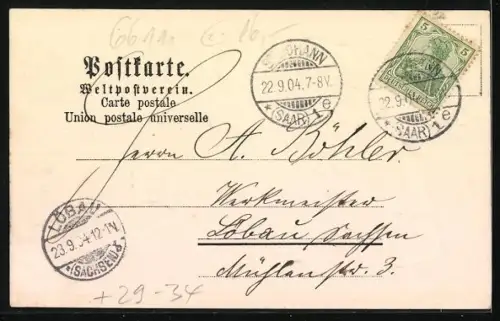 6611
Postkarte.
Weltpostverein.
Carte postale
Union postale universelle
ST. JOHANN
22.9.04.7-8V.
* (SAAR) 1 e
5 5
22.9.04
* (SAAR) 1 e
Herrn A. Böhler.
Werkmeister
Löbau Sachsen
Mühlenstr. 3.
LÖBAU
23.9.04.12-1N.
*(SACHSEN) d.
+29-34